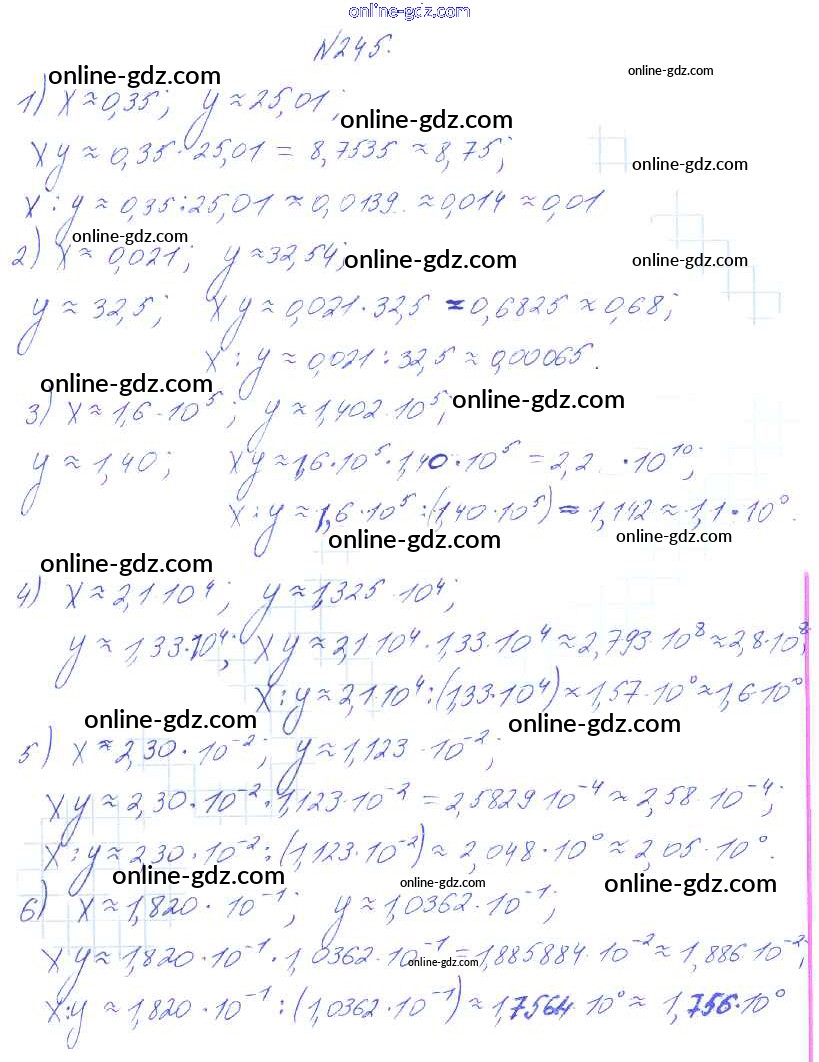 online-gdz.com
№245.
online-gdz.com online-gdz.com
1) x ≈ 0,35; y ≈ 25,01;
online-gdz.com
xy ≈ 0,35 · 25,01 = 8,7535 ≈ 8,75;
online-gdz.com
x : y ≈ 0,35 : 25,01 ≈ 0,0139.. ≈ 0,014 ≈ 0,01
online-gdz.com
2) x ≈ 0,021; y ≈ 32,54;
online-gdz.com online-gdz.com
y ≈ 32,5; xy ≈ 0,021 · 32,5 ≈ 0,6825 ≈ 0,68;
x : y ≈ 0,021 : 32,5 ≈ 0,00065.
online-gdz.com online-gdz.com
3) x ≈ 1,6 · 10⁵; y ≈ 1,402 · 10⁵;
y ≈ 1,40; xy ≈ 1,6 · 10⁵ · 1,40 · 10⁵ = 2,2 · 10¹⁰;
x : y ≈ 1,6 · 10⁵ : (1,40 · 10⁵) ≈ 1,142 ≈ 1,1 · 10⁰.
online-gdz.com online-gdz.com
online-gdz.com
4) x ≈ 2,1 10⁴; y ≈ 1,325 · 10⁴;
y ≈ 1,33 · 10⁴; xy ≈ 2,1 10⁴ · 1,33 · 10⁴ ≈ 2,793 · 10⁸ ≈ 2,8 · 10⁸;
x : y ≈ 2,1 10⁴ : (1,33 · 10⁴) ≈ 1,57 · 10⁰ ≈ 1,6 · 10⁰
online-gdz.com online-gdz.com
5) x ≈ 2,30 · 10⁻²; y ≈ 1,123 · 10⁻²;
xy ≈ 2,30 · 10⁻² · 1,123 · 10⁻² = 2,5829 10⁻⁴ ≈ 2,58 · 10⁻⁴;
x : y ≈ 2,30 · 10⁻² : (1,123 · 10⁻²) ≈ 2,048 · 10⁰ ≈ 2,05 · 10⁰.
online-gdz.com online-gdz.com online-gdz.com
6) x ≈ 1,820 · 10⁻¹; y ≈ 1,0362 · 10⁻¹;
xy ≈ 1,820 · 10⁻¹ · 1,0362 · 10⁻¹ = 1,885884 · 10⁻² ≈ 1,886 10⁻²;
online-gdz.com
x : y ≈ 1,820 · 10⁻¹ : (1,0362 · 10⁻¹) ≈ 1,7564 · 10⁰ ≈ 1,756 · 10⁰